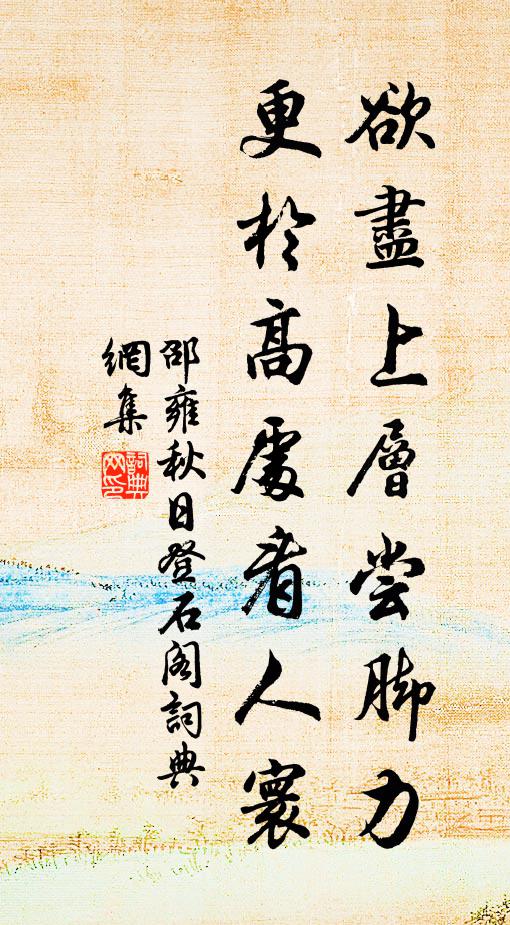 欲盡上層尝脚力
更於高處看人寰
邵雍秋日登石阁詞典
網集
詞典网印